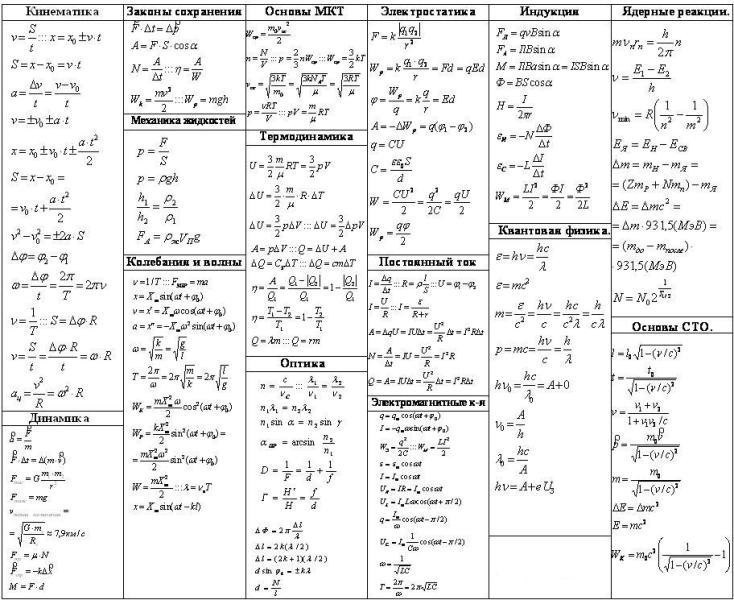 Кинематика
v=S/t ::: x=x₀±v·t
S=x-x₀=v·t
a=Δv/t=(v-v₀)/t
v=±v₀±a·t
x=x₀±v₀·t±a·t²/2
S=x-x₀=
=v₀·t+a·t²/2
v²-v₀²=±2a·S
Δφ=φ₂-φ₁
ω=Δφ/t=2π/T=2πν
ν=1/T ::: S=Δφ·R
v=S/t=Δφ·R/t=ω·R
aц=v²/R=ω²·R
Динамика
F·Δt=Δ(m·v)
=√(G·m/R)≈7,9км/с
M=F·d
Законы сохранения
F·Δt=Δp
A=F·S·cosα
N=A/Δt ::: η=A/W
Wk=mv²/2 ::: Wp=mgh
Механика жидкостей
p=F/S
p=ρgh
h₁/h₂=ρ₂/ρ₁
FA=ρжVПg
Колебания и волны
ν=1/T ::: =ma
x=Xm sin(ωt+φ₀)
v=x'=Xmωcos(ωt+φ₀)
a=x''=-Xmω²sin(ωt+φ₀)
ω=√(k/m)=√(g/l)
T=2π/ω=2π√(m/k)=2π√(l/g)
WK=mXm²ω/2 cos²(ωt+φ₀)
WP=kXm²/2 sin²(ωt+φ₀)=
=mXm²ω²/2 sin²(ωt+φ₀)
W=mXm²/2 ::: λ=vвT
x=Xm sin(ωt-kl)
Основы МКТ
Wср=m₀v²/2
n=N/V ::: p=2/3 nWср ::: Wср=3/2 kT
vср=√(3kT/m₀)=√(3kNAT/μ)=√(3RT/μ)
p=νRT/V ::: pV=m/μ RT
Термодинамика
U=3/2 m/μ RT=3/2 pV
ΔU=3/2·m/μ·R·ΔT
ΔU=3/2 pΔV ::: ΔU=3/2 ΔpV
A=pΔV ::: Q=ΔU+A
ΔQ=CpΔT ::: ΔQ=cmΔT
η=A/Q₁=(Q₁-|Q₂|)/Q₁=1-|Q₂|/Q₁
η=(T₁-T₂)/T₁=1-T₂/T₁
Q=λm ::: Q=rm
Оптика
n=c/vC ::: λ₁/v₁=λ₂/v₂
n₁λ₁=n₂λ₂
n₁ sinα=n₂ sinγ
αПР=arcsin n₂/n₁
D=1/F=1/d+1/f
Г=H'/H=f/d
ΔФ=2πΔl/λ
Δl=2k(λ/2)
Δl=(2k+1)(λ/2)
d sinφk=±kλ
d=N/l
Электростатика
F=k|q₁q₂|/r²
Wp=k q₁·q₂/r=Fd=qEd
φ=Wp/q=k q/r=Ed
A=-ΔWp=q(φ₁-φ₂)
q=CU
C=εε₀S/d
W=CU²/2=q²/2C=qU/2
Wp=qφ/2
Постоянный ток
I=Δq/Δt ::: R=ρl/S ::: U=φ₁-φ₂
I=U/R ::: I=ε/(R+r)
A=ΔqU=IUΔt=U²/R Δt=I²RΔt
N=A/Δt=IU=U²/R=I²R
Q=A=IUΔt=U²/R Δt=I²RΔt
Электромагнитные к-я
q=qm cos(ωt+φ₀)
I=-qmωsin(ωt+φ₀)
WЭ=q²/2C ::: WМ=LI²/2
ε=εm cosωt
I=Im cosωt
UR=IR=Im cosωt
UL=ImLωcos(ωt+π/2)
q=Im/ω cos(ωt-π/2)
UC=Im/Cω cos(ωt-π/2)
ω=1/√LC
T=2π/ω=2π√LC
Индукция
FЛ=qvBsinα
FА=IlBsinα
M=IlBasinα=ISBsinα
Φ=BScosα
H=I/2πr
εи=-NΔΦ/Δt
εС=-LΔI/Δt
WМ=LI²/2=ΦI/2=Φ²/2L
Квантовая физика.
ε=hν=hc/λ
ε=mc²
m=ε/c²=hν/c²=hc/c²λ=h/cλ
p=mc=hν/c=h/λ
hν₀=hc/λ=A+0
ν₀=A/h
λ₀=hc/A
hν=A+eUЗ
Ядерные реакции.
mvnrn=h/2π n
ν=(E₁-E₂)/h
νmin=R(1/n²-1/m²)
EЯ=EН-EСВ
Δm=mН-mЯ=
=(ZmP+Nmn)-mЯ
ΔE=Δmc²=
=Δm·931,5(МэВ)=
=(mдо-mпосле)·
·931,5(МэВ)
Основы СТО.
l=l₀√(1-(v/c)²)
t=t₀/√(1-(v/c)²)
p=m₀v/√(1-(v/c)²)
m=m₀/√(1-(v/c)²)
ΔE=Δmc²
E=mc²
WK=m₀c²(1/√(1-(v/c)²)-1)